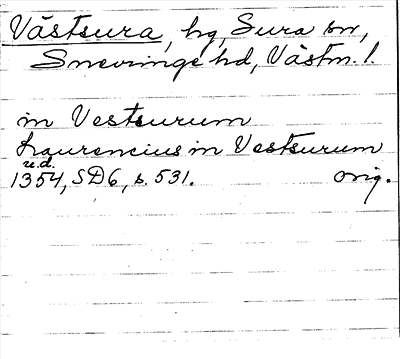 Västsura, hg, Sura sn,
Snevringe hd, Västm. l.
in Vestsurum
Laurencius in Vestsurum
u.d.
1354, SD6, s. 531. orig.